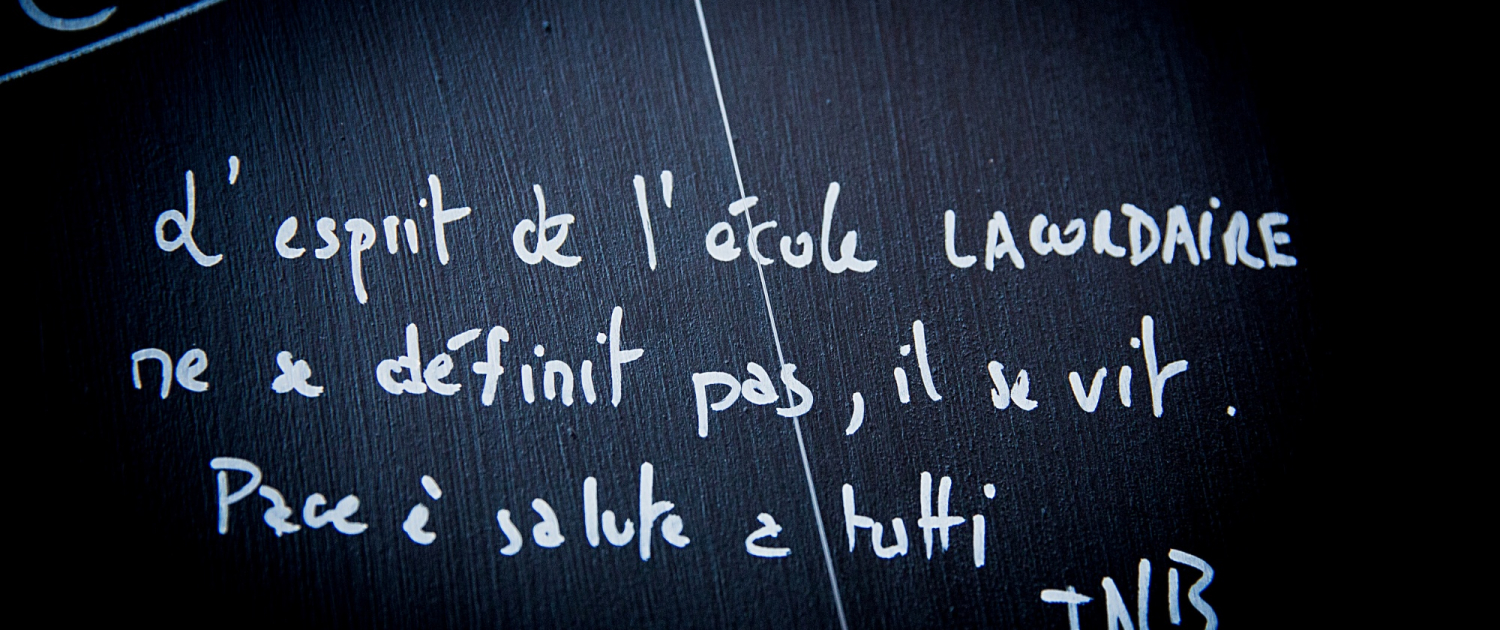 L'esprit de l'école LACORDAIRE
ne se définit pas, il se vit.
Pace è salute a tutti